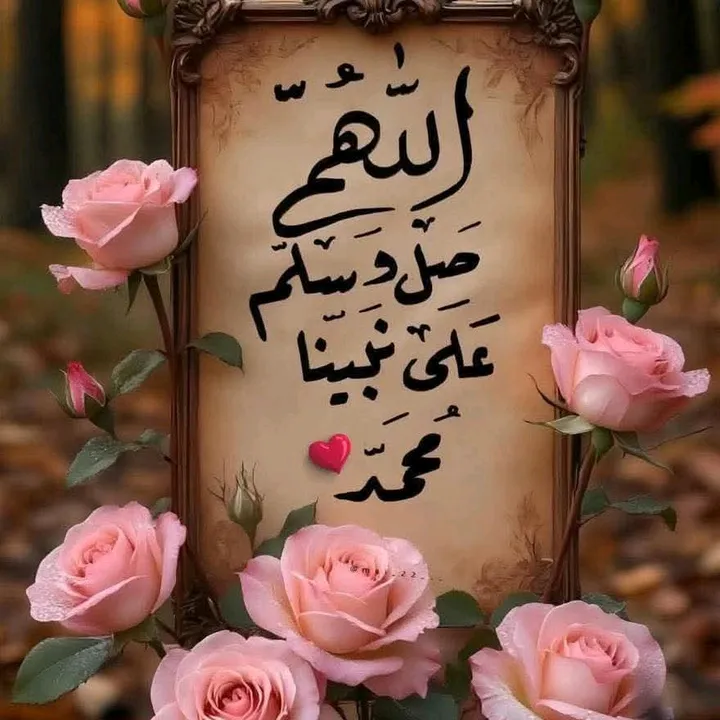 اللّٰهُمَّ
صَلِّ وَسَلِّمْ
عَلَى نَبِيِّنَا
مُحَمَّد